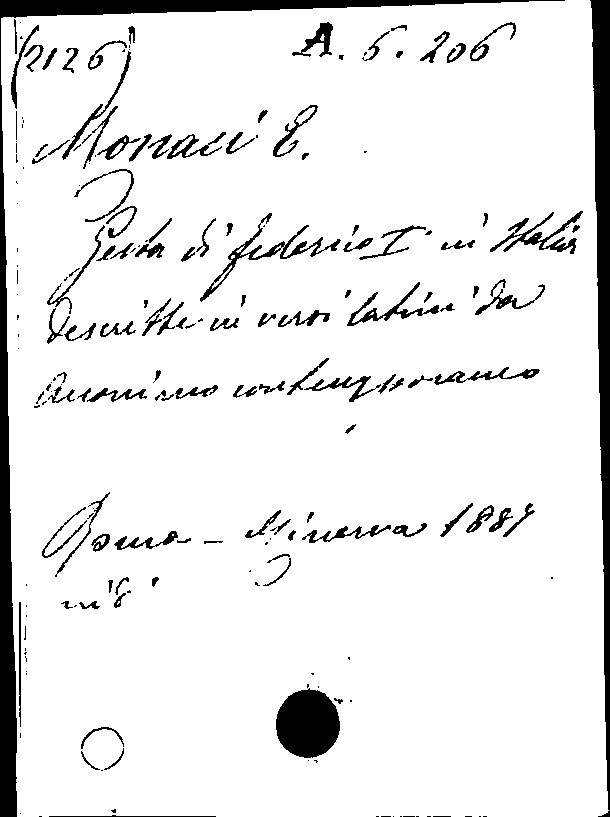 (2126) A. 6. 206
Monaci E.
Gesta di Federico I° in Italia
descritte in versi latini da
Anonimo contemporaneo
Roma - Minerva 1887
in 8°